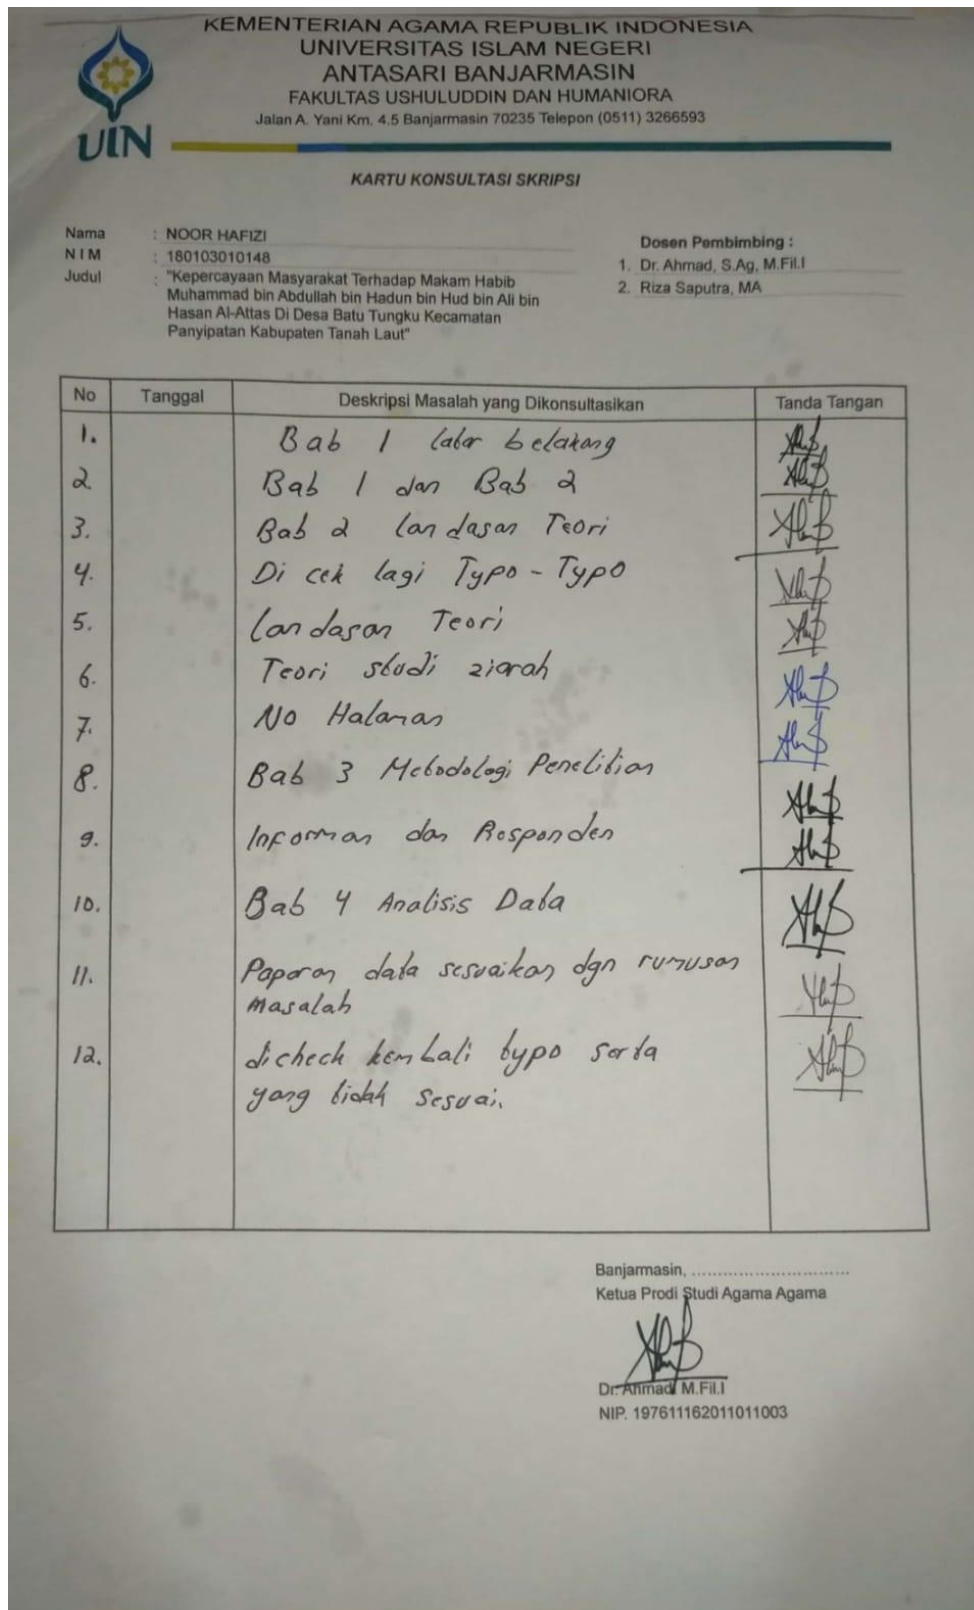 KEMENTERIAN AGAMA REPUBLIK INDONESIA
UNIVERSITAS ISLAM NEGERI
ANTASARI BANJARMASIN
FAKULTAS USHULUDDIN DAN HUMANIORA
Jalan A. Yani Km. 4.5 Banjarmasin 70235 Telepon (0511) 3266593
UIN
KARTU KONSULTASI SKRIPSI
Nama : NOOR HAFIZI
N I M : 180103010148
Judul : "Kepercayaan Masyarakat Terhadap Makam Habib
Muhammad bin Abdullah bin Hadun bin Hud bin Ali bin
Hasan Al-Attas Di Desa Batu Tungku Kecamatan
Panyipatan Kabupaten Tanah Laut"
Dosen Pembimbing :
1. Dr. Ahmad, S.Ag, M.Fil.I
2. Riza Saputra, MA
No Tanggal Deskripsi Masalah yang Dikonsultasikan Tanda Tangan
1. Bab 1 latar belakang
2. Bab 1 dan Bab 2
3. Bab 2 landasan Teori
4. Di cek lagi Typo - Typo
5. Landasan Teori
6. Teori studi ziarah
7. No Halaman
8. Bab 3 Metodologi Penelitian
9. Informan dan Responden
10. Bab 4 Analisis Data
11. Paparan data sesuaikan dgn rumusan
masalah
12. dicheck kembali typo serta
yang tidak sesuai.
Banjarmasin, ..............................
Ketua Prodi Studi Agama Agama
Dr. Ahmad, M.Fil.I
NIP. 197611162011011003